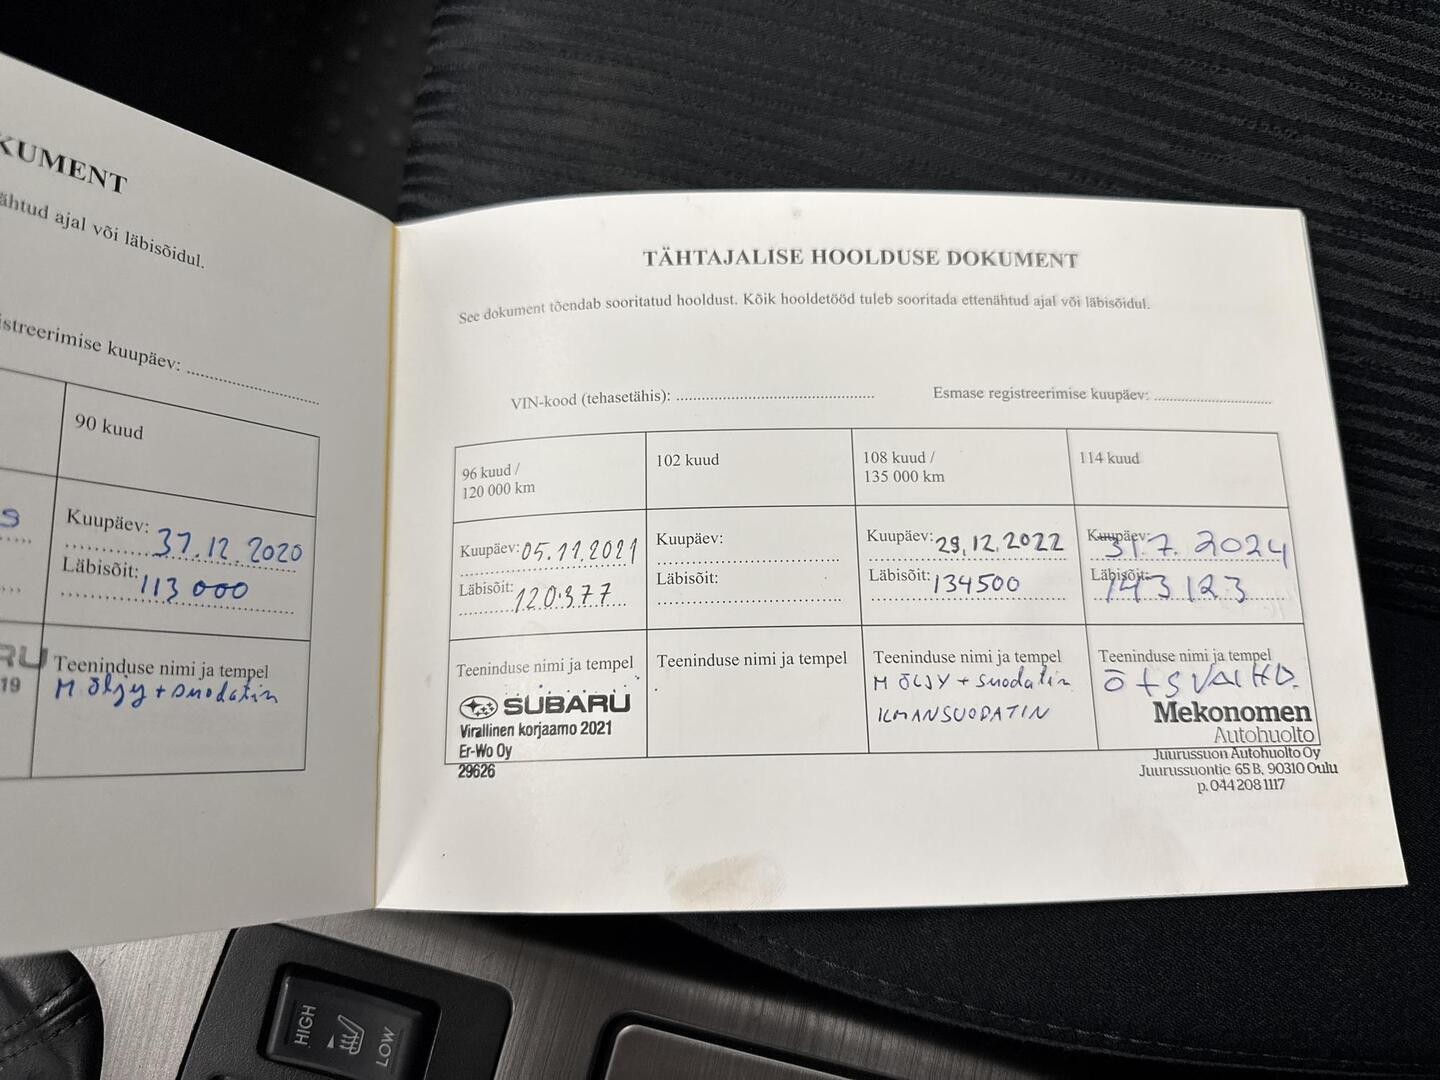 KUMENT
ähtud ajal või läbisõidul.
istreerimise kuupäev:
90 kuud
Kuupäev: 31.12.2020
Läbisõit: 113 000
RU
19
Teeninduse nimi ja tempel
M öljy + suodatin
TÄHTAJALISE HOOLDUSE DOKUMENT
See dokument tõendab sooritatud hooldust. Kõik hooldetööd tuleb sooritada ettenähtud ajal või läbisõidul.
VIN-kood (tehasetähis):
Esmase registreerimise kuupäev:
96 kuud /
120 000 km
Kuupäev: 05.11.2021
Läbisõit: 120.377
Teeninduse nimi ja tempel
SUBARU
Virallinen korjaamo 2021
Er-Wo Oy
29626
102 kuud
Kuupäev:
Läbisõit:
Teeninduse nimi ja tempel
108 kuud /
135 000 km
Kuupäev: 29.12.2022
Läbisõit: 134500
Teeninduse nimi ja tempel
M ÖLJY + suodatin
ILMANSUODATIN
114 kuud
Kuupäev: 31.7.2024
Läbisõit: 143123
Teeninduse nimi ja tempel
Ö+S VAIHD.
Mekonomen
Autohuolto
Juurussuon Autohuolto Oy
Juurussuontie 65 B, 90310 Oulu
p. 044 208 1117
HIGH
LOW